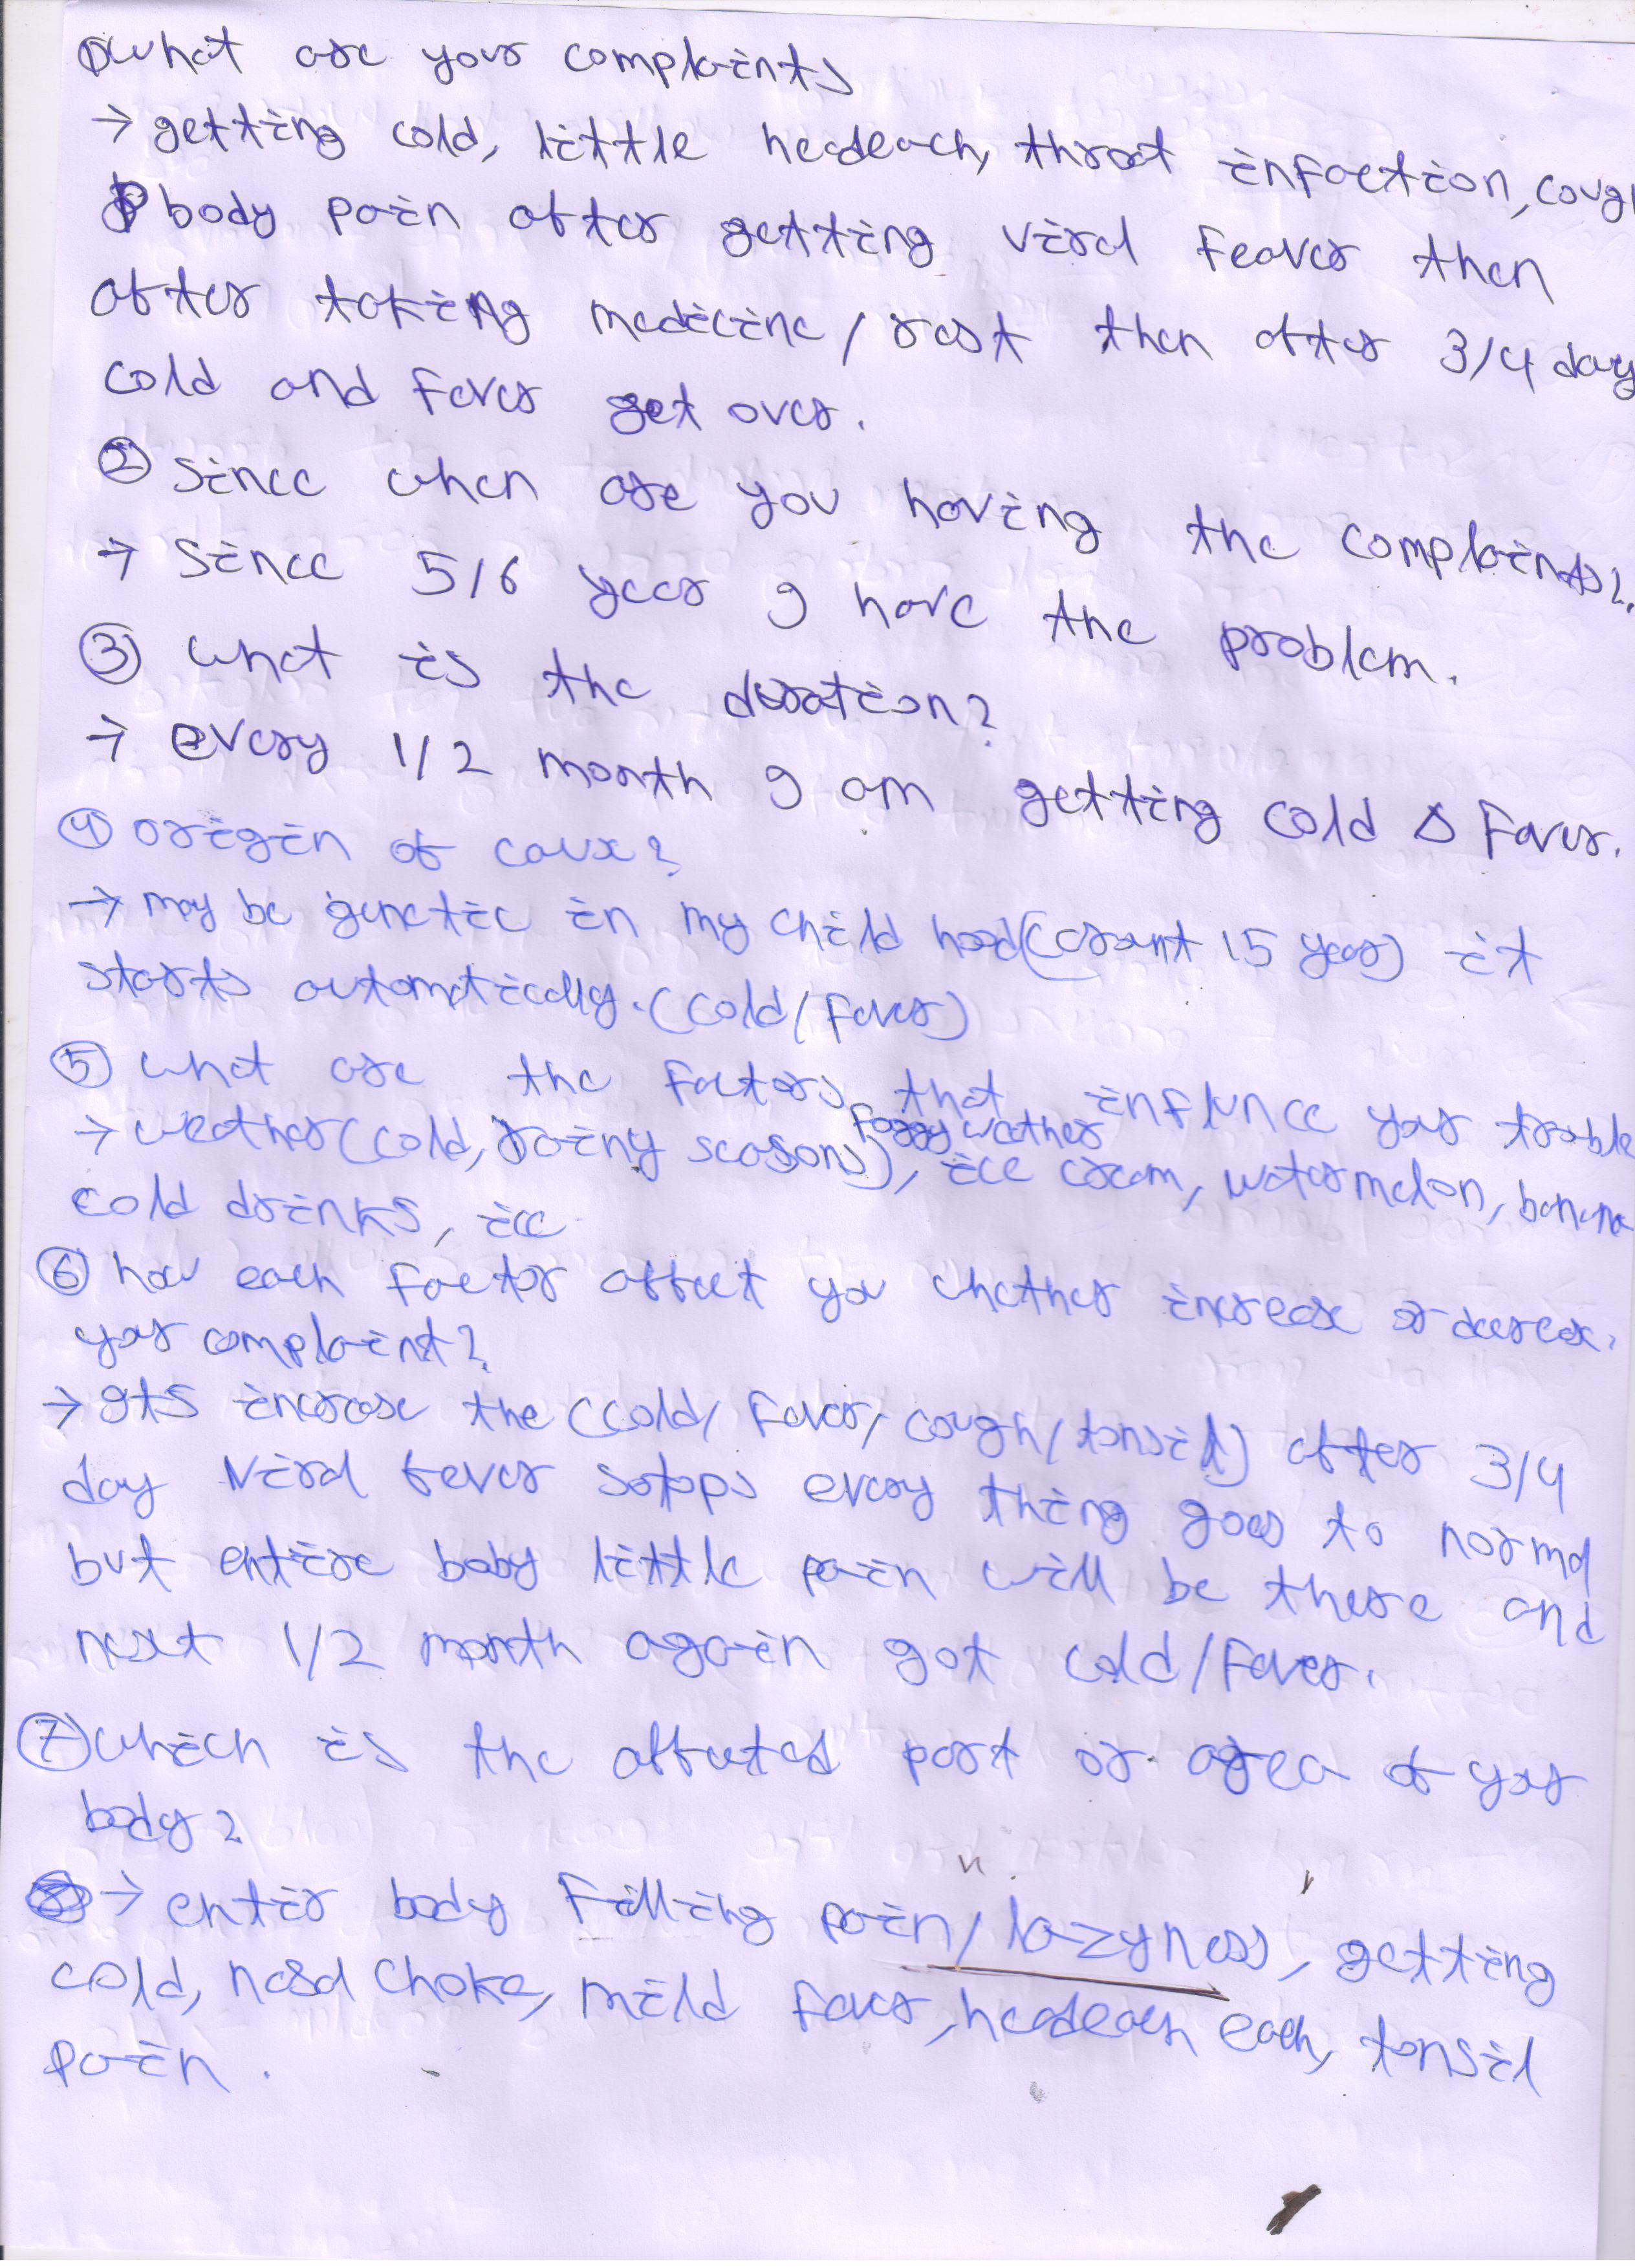 ① what are your complaints
→ getting cold, little headeach, throat infaction, cough
body pain after getting viral feaver then
after taking medicine / rest then after 3/4 day
cold and fever get over.
② since when are you having the complaints?
→ since 5/6 year I have the problem.
③ what is the duration?
→ every 1/2 month I am getting cold & fever.
④ origin of cause?
→ may be genetic in my child hood (arount 15 year) it
starts automatically. (cold / fever)
⑤ what are the factors that influnce your trouble
→ weather (cold, rainy seasons), foggy weather, ice cream, watermelon, banana
cold drinks, ice
⑥ how each factor affect you whether increase or decrease.
your complaint?
→ Its increase the (cold / fever / cough / tonsil) after 3/4
day viral fever sotpps every thing goes to normal
but entire boby little pain will be there and
next 1/2 month again got cold / fever.
⑦ which is the affected part or area of your
body?
→ entir body filling pain / lazyness, getting
cold, nasal choke, mild fever, headeach each, tonsil
pain.